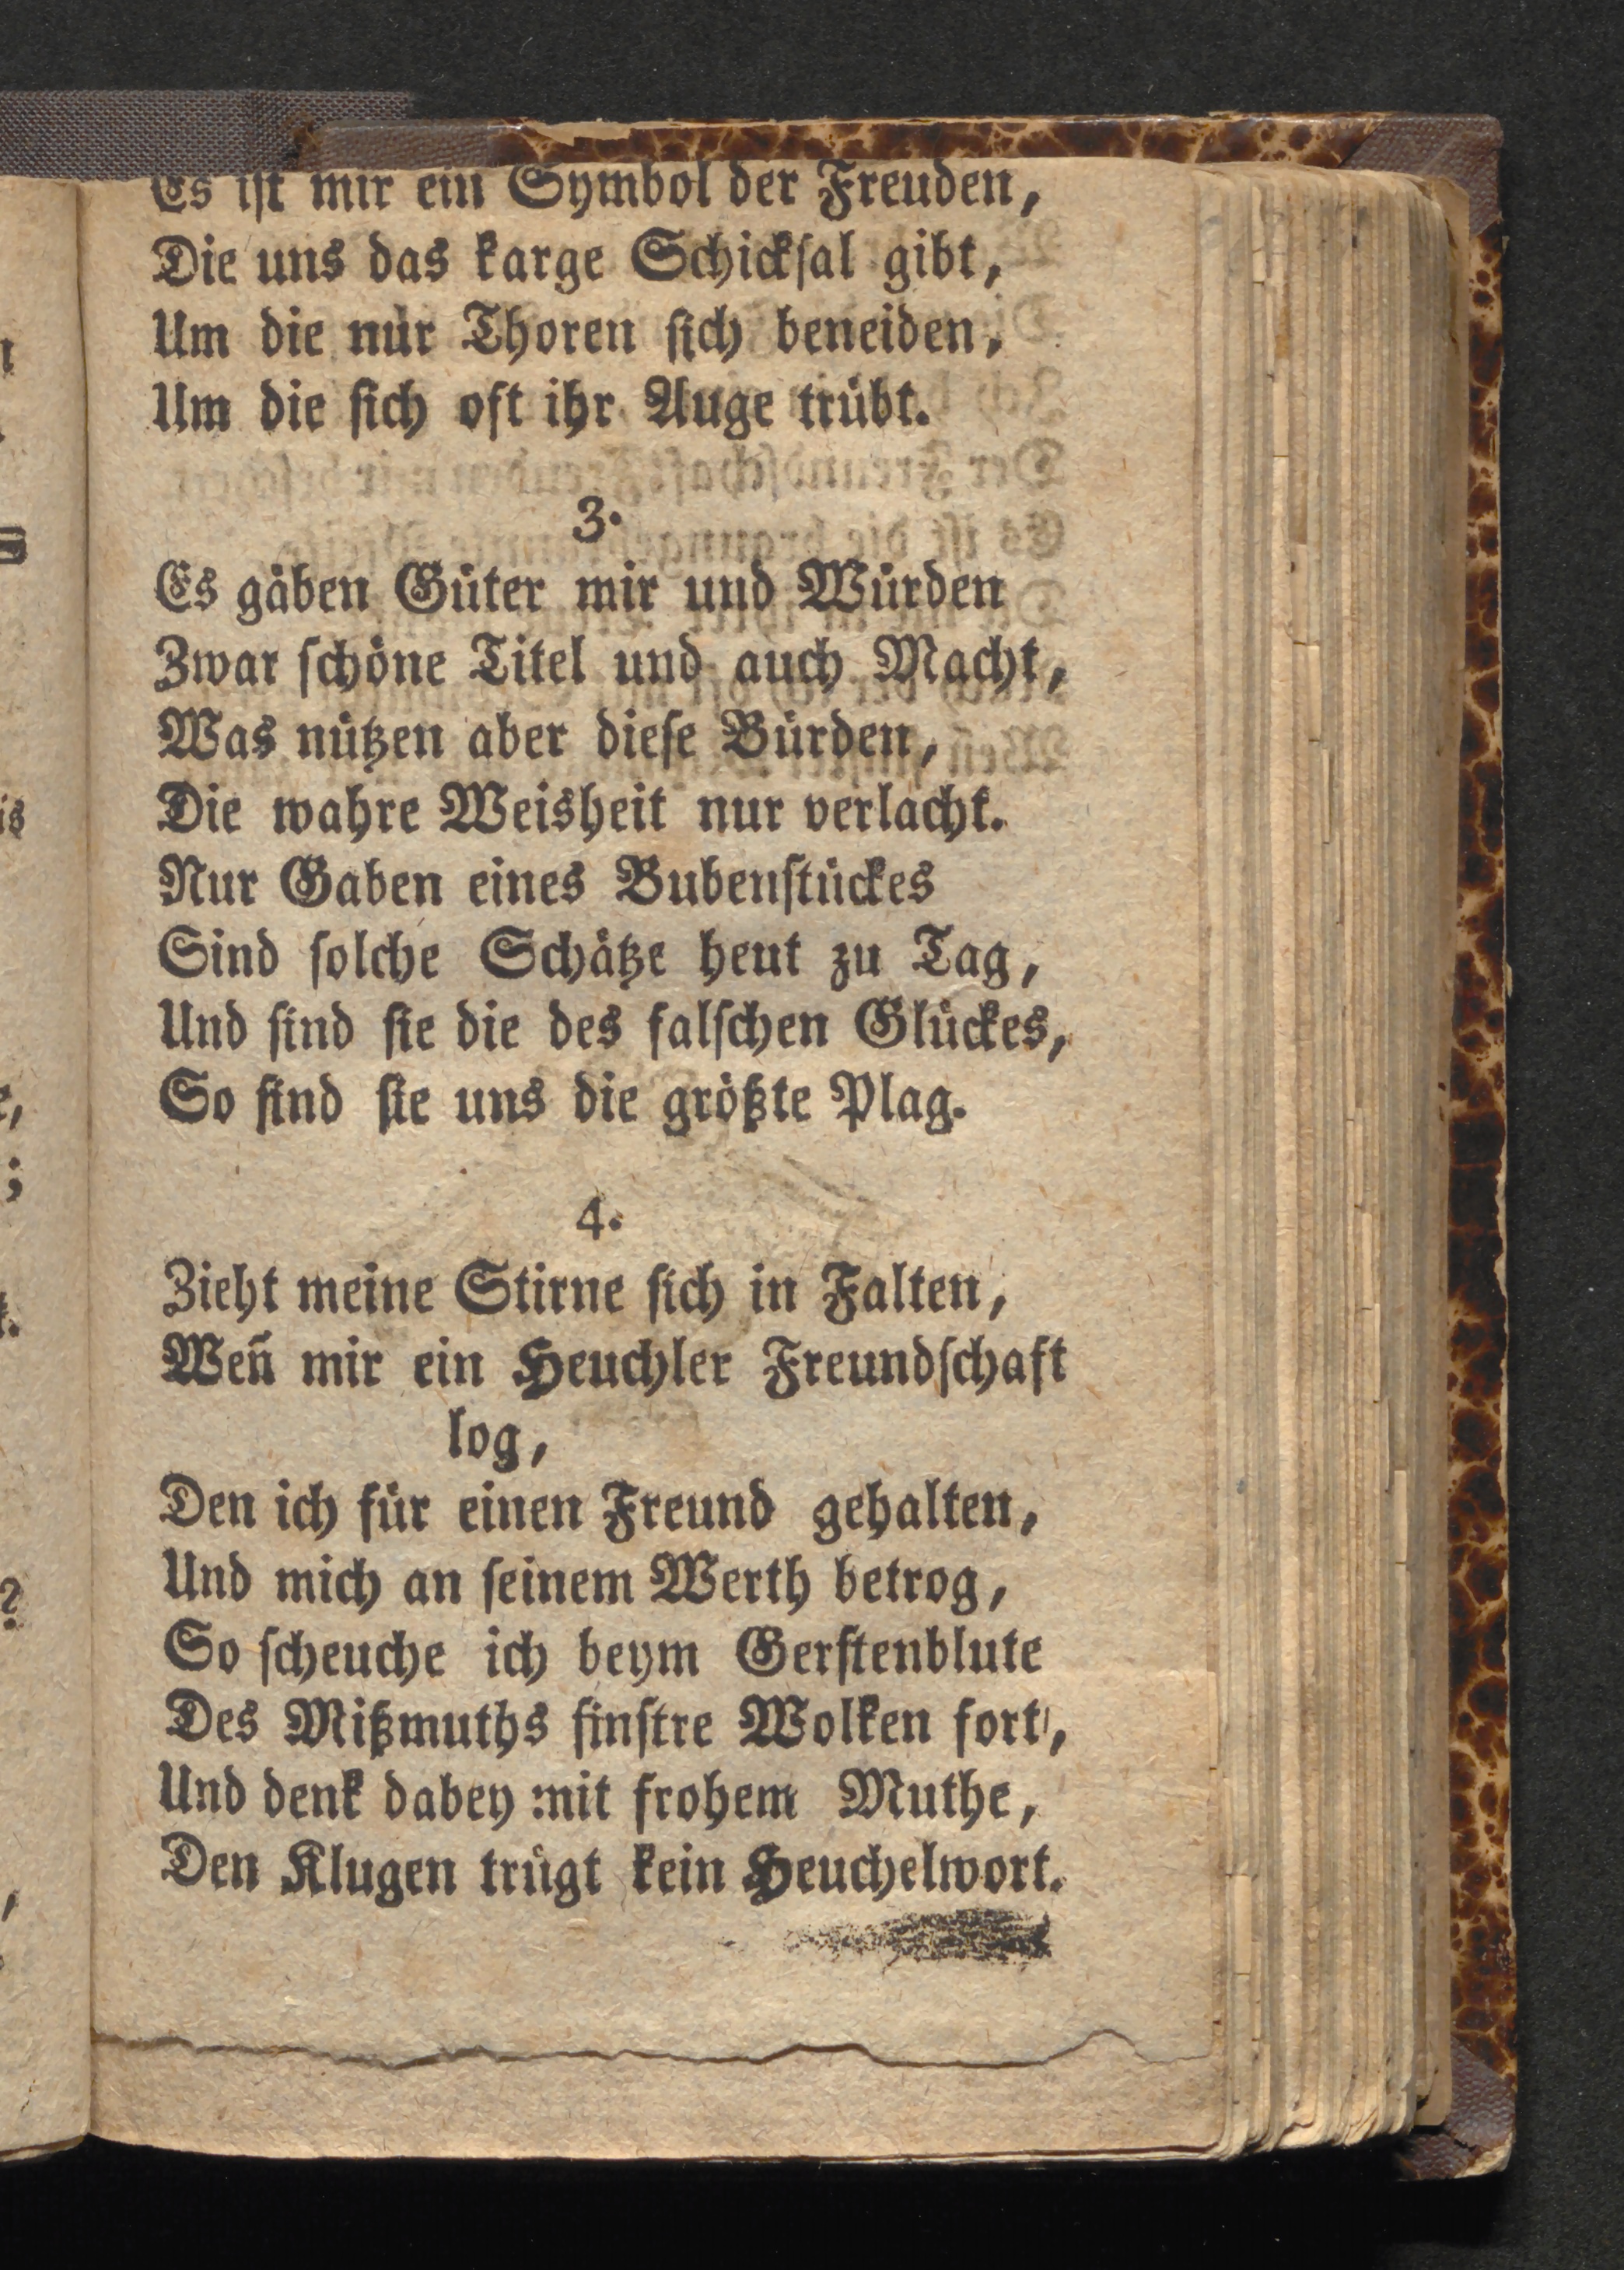 Es iſt mir ein Symbol der Freuden,
Die uns das karge Schickſal gibt,
Um die nur Thoren ſich beneiden,
Um die ſich oft ihr Auge trübt.
3.
Es gäben Güter mir und Würden
Zwar ſchöne Titel und auch Macht,
Was nützen aber dieſe Bürden,
Die wahre Weisheit nur verlacht.
Nur Gaben eines Bubenſtückes
Sind ſolche Schätze heut zu Tag,
Und ſind ſie die des falſchen Glückes,
So ſind ſie uns die größte Plag.
4.
Zieht meine Stirne ſich in Falten,
Weñ mir ein Heuchler Freundſchaft
log,
Den ich für einen Freund gehalten,
Und mich an ſeinem Werth betrog,
So ſcheuche ich beym Gerſtenblute
Des Mißmuths finſtre Wolken fort,
Und denk dabey mit frohem Muthe,
Den Klugen trügt kein Heuchelwort.